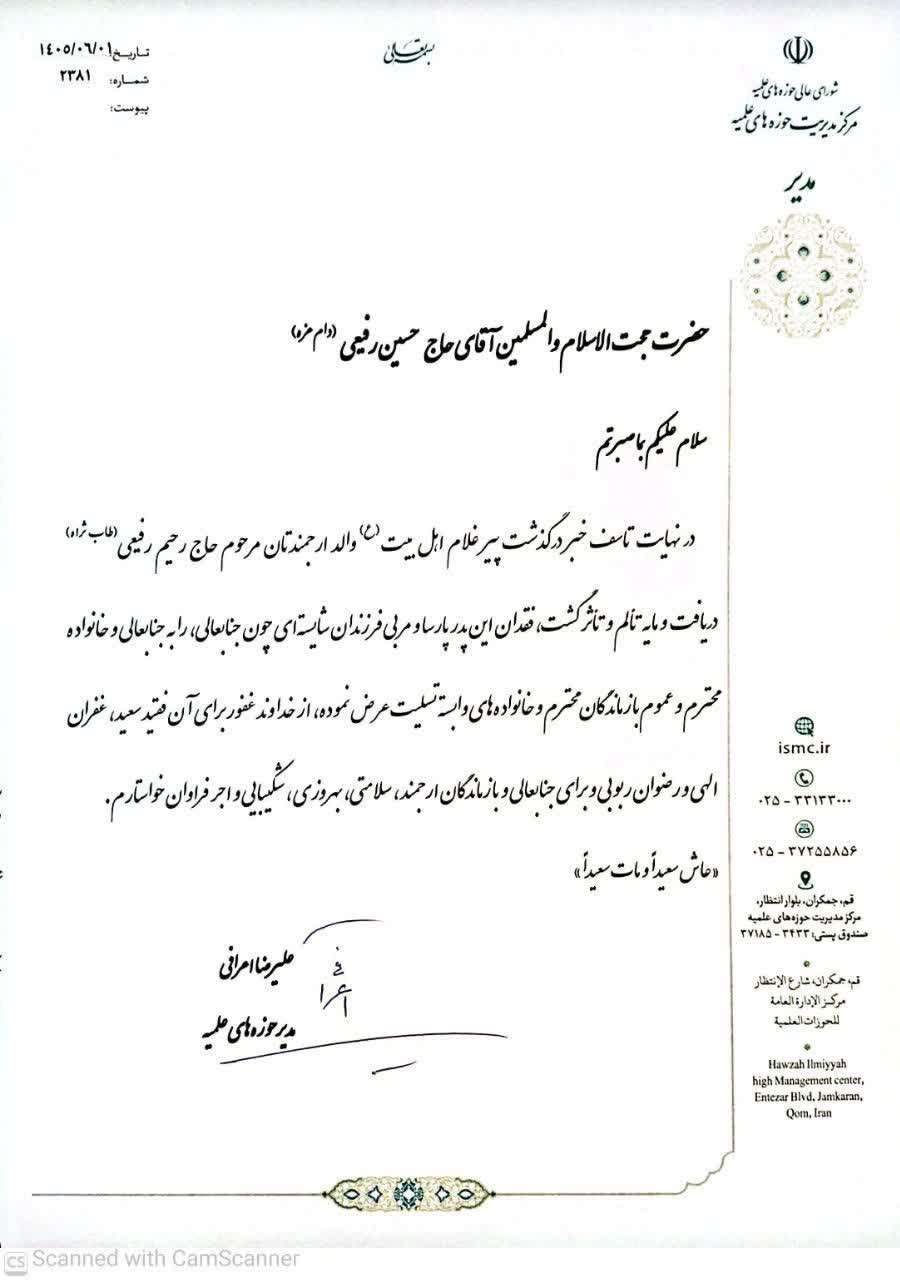 بسمه تعالی
تاریخ: ۱٤۰۵/۰۶/۰۱
شماره: ۲۳۸۱
پیوست:
شورای عالی حوزه های علمیه
مرکز مدیریت حوزه های علمیه
مدیر
حضرت حجت الاسلام والمسلمین آقای حاج حسین رفیعی (دام عزه)
سلام علیکم بما صبرتم
در نهایت تاسف خبر درگذشت پیر غلام اهل بیت (ع) والد ارجمندتان مرحوم حاج رحیم رفیعی (طاب ثراه)
دریافت و مایه تألم و تأثر گشت، فقدان این پدر پارسا و مربی فرزندان شایسته‌ای چون جنابعالی، را به جنابعالی و خانواده
محترم و عموم بازماندگان محترم و خانواده‌های وابسته تسلیت عرض نموده، از خداوند غفور برای آن فقید سعید، غفران
الهی و رضوان ربوبی و برای جنابعالی و بازماندگان ارجمند، سلامتی، بهروزی، شکیبایی و اجر فراوان خواستارم.
«عاش سعیداً و مات سعیداً»
علیرضا اعرافی
مدیر حوزه های علمیه
ismc.ir
۰۲۵ - ۳۳۱۳۳۰۰۰
۰۲۵ - ۳۷۲۵۵۸۵۶
قم، جمکران، بلوار انتظار،
مرکز مدیریت حوزه‌های علمیه
صندوق پستی: ۳۴۳۳ - ۳۷۱۸۵
قم، جمکران، شارع الإنتظار
مرکز الإدارة العامة
للحوزات العلمیة
Hawzah Ilmiyyah
high Management center,
Entezar Blvd, Jamkaran,
Qom, Iran
CS Scanned with CamScanner